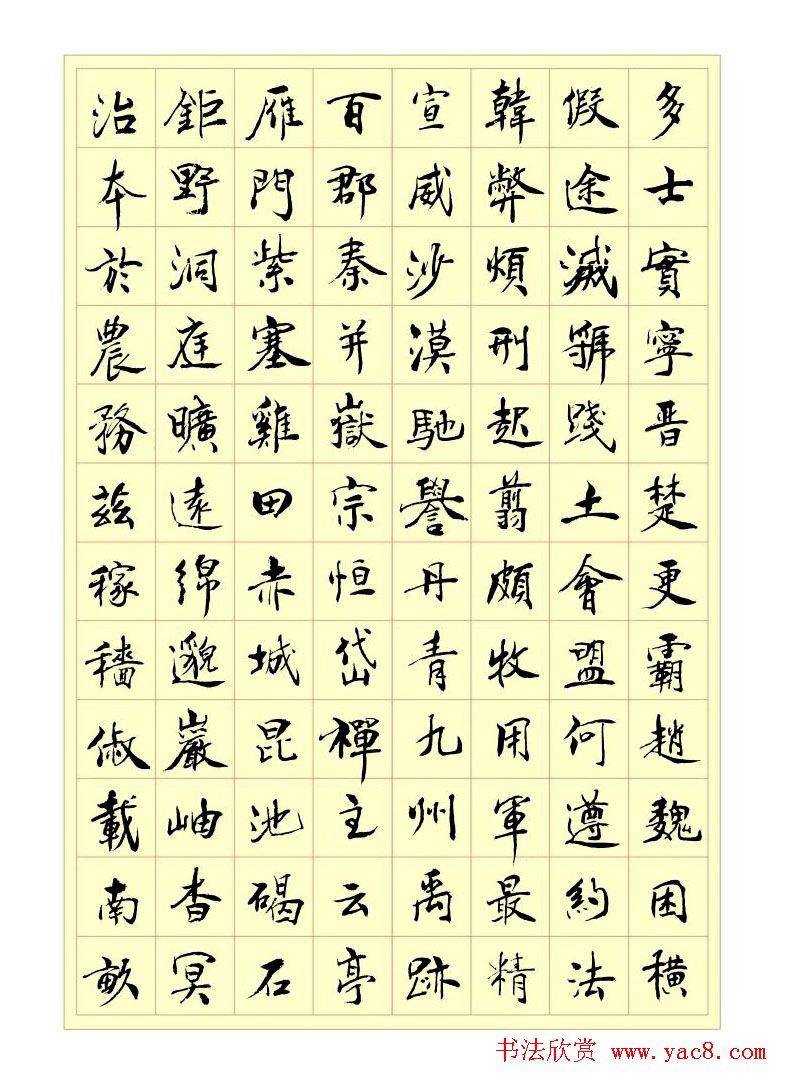 多士實寧晋楚更霸趙魏困橫
假途滅虢踐土會盟何遵約法
韓弊煩刑起翦頗牧用軍最精
宣威沙漠馳譽丹青九州禹跡
百郡秦并嶽宗恒岱禪主云亭
雁門紫塞雞田赤城昆池碣石
鉅野洞庭曠遠綿邈巖岫杳冥
治本於農務茲稼穡俶載南畝
书法欣赏 www.yac8.com